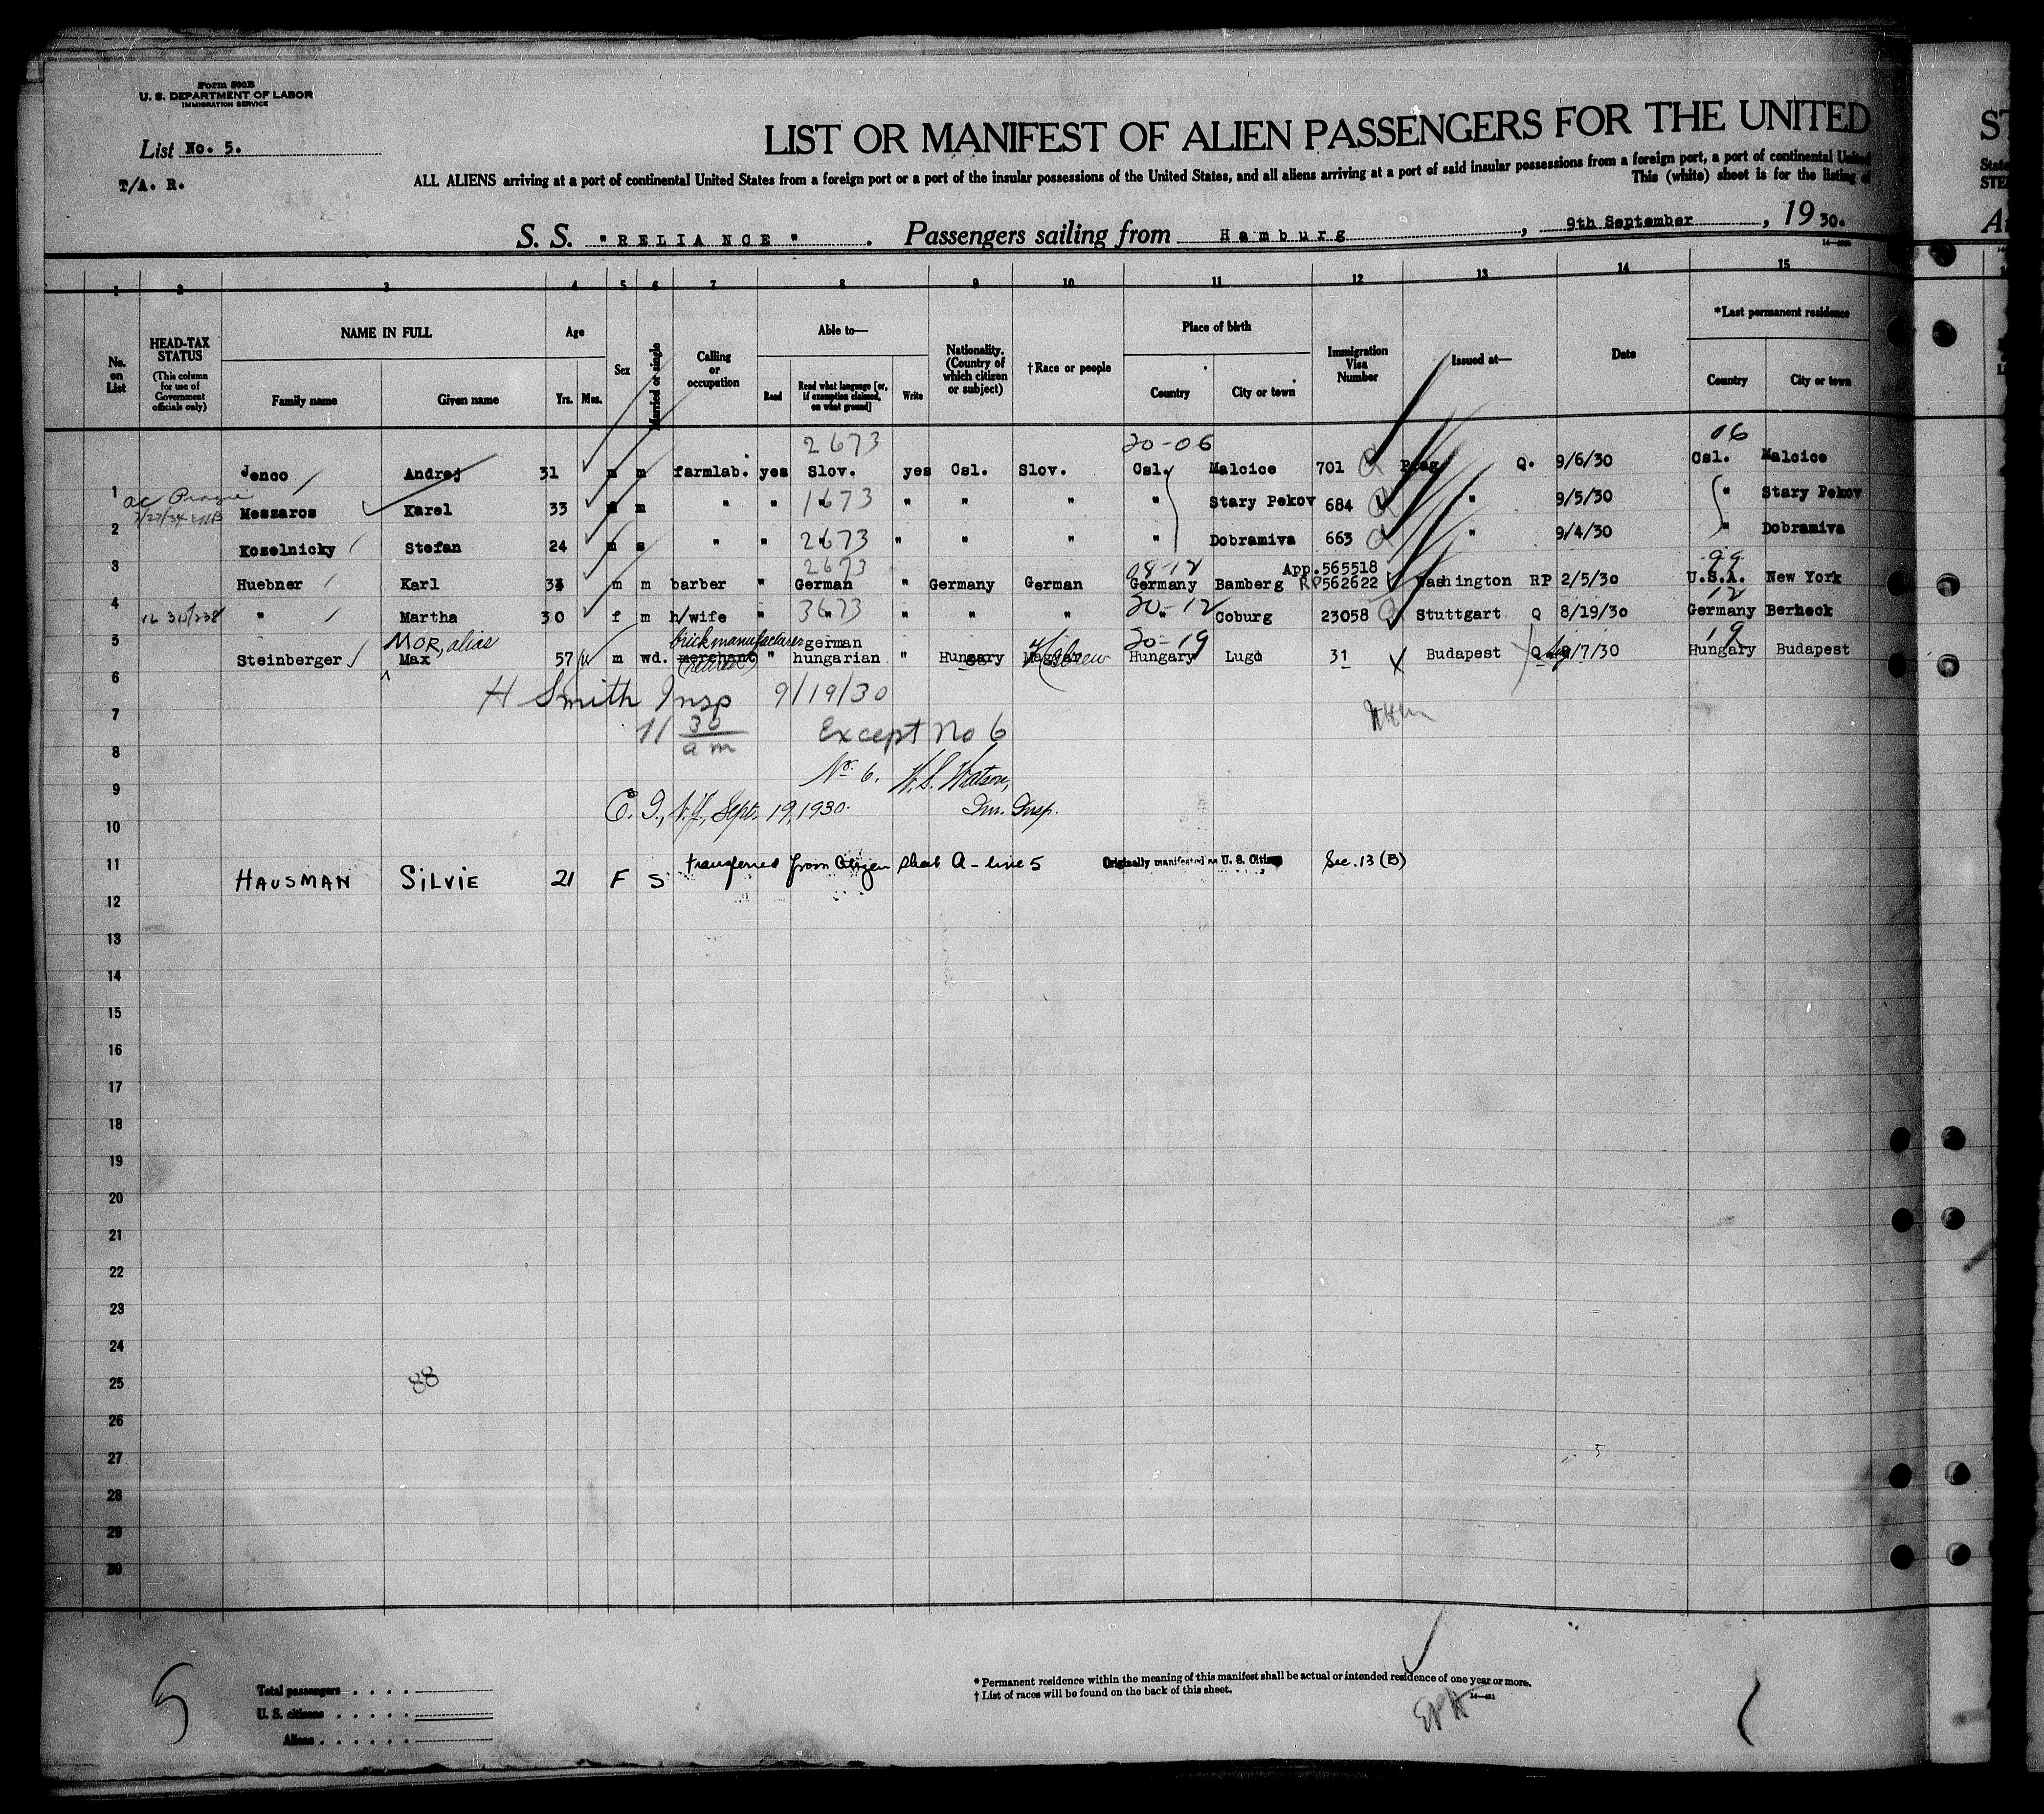 Form 500B
U. S. DEPARTMENT OF LABOR
IMMIGRATION SERVICE
List No. 5.
T/A. R.
LIST OR MANIFEST OF ALIEN PASSENGERS FOR THE UNITED
ALL ALIENS arriving at a port of continental United States from a foreign port or a port of the insular possessions of the United States, and all aliens arriving at a port of said insular possessions from a foreign port, a port of continental United
This (white) sheet is for the listing of
S. S. "RELIANCE". Passengers sailing from Hamburg, 9th September, 1930.
1 2 3 4 5 6 7 8 9 10 11 12 13 14 15
No. on List
HEAD-TAX STATUS
(This column for use of Government officials only)
NAME IN FULL
Family name Given name
Age
Yrs. Mos.
Sex
Married or single
Calling or occupation
Able to—
Read Read what language [or, if exemption claimed, on what ground] Write
Nationality. (Country of which citizen or subject)
†Race or people
Place of birth
Country City or town
Immigration Visa Number
Issued at—
Date
*Last permanent residence
Country City or town
2673 20-06 06
1 Jenco Andrej 31 m m farmlab. yes Slov. yes Csl. Slov. Csl. Malcice 701 Q Prag Q. 9/6/30 Csl. Malcice
ac Prague
2 Meszaros Karel 33 m m " " " 1673 " " " " Stary Pekov 684 Q " 9/5/30 " Stary Pekov
3 Kozelnicky Stefan 24 m s " " " 2673 " " " " Dobramiva 663 Q " 9/4/30 " Dobramiva
2673 App.565518 99
4 Huebner Karl m m barber " German " Germany German Germany Bamberg RP562622 Washington RP 2/5/30 U.S.A. New York
20-12 12
5 " Martha 30 f m h/wife " " 3673 " " " " Coburg 23058 Q Stuttgart Q 8/19/30 Germany Berneck
MOR, alias brickmanufacturer german Hebrew 20-19 19
6 Steinberger Max 57 m wd. merchant (retired) " hungarian " Hungary Magyar Hungary Lugo 31 Budapest Q 7/30 Hungary Budapest
7 H Smith Insp 9/19/30
8 11 30 am Except No 6
9 No. 6. W.S. Watson,
10 E. I., N.Y., Sept. 19, 1930. Im. Insp.
11 transferred from Citizen sheet A - line 5 Originally manifested as U. S. Citizen Sec. 13 (B)
12 HAUSMAN SILVIE 21 F S
13
14
15
16
17
18
19
20
21
22
23
24
25 88
26
27
28
29
30
5
Total passengers
U. S. citizens
Aliens
* Permanent residence within the meaning of this manifest shall be actual or intended residence of one year or more.
† List of races will be found on the back of this sheet.